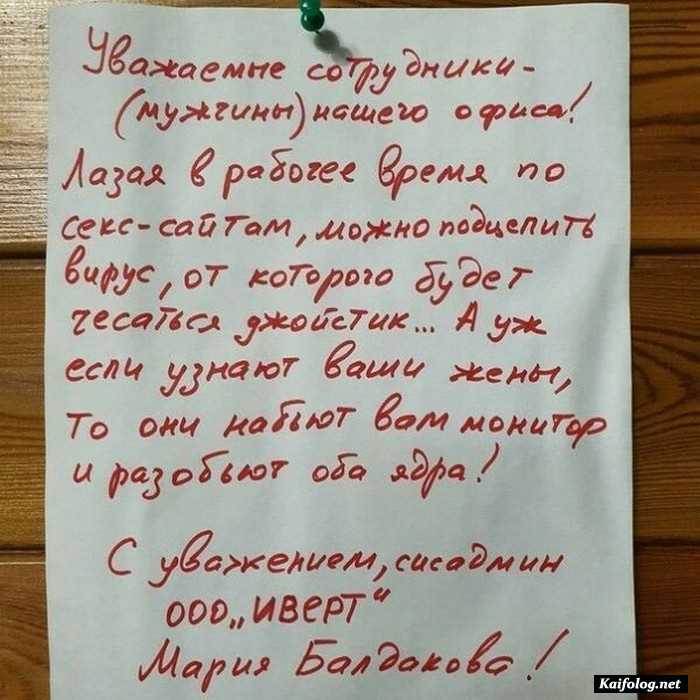 Уважаемые сотрудники -
(мужчины) нашего офиса!
Лазая в рабочее время по
секс-сайтам, можно подцепить
вирус, от которого будет
чесаться джойстик... А уж
если узнают ваши жены,
то они набьют вам монитор
и разобьют оба ядра!
С уважением, сисадмин
ООО „ИВЕРТ"
Мария Балдакова!
Kaifolog.net